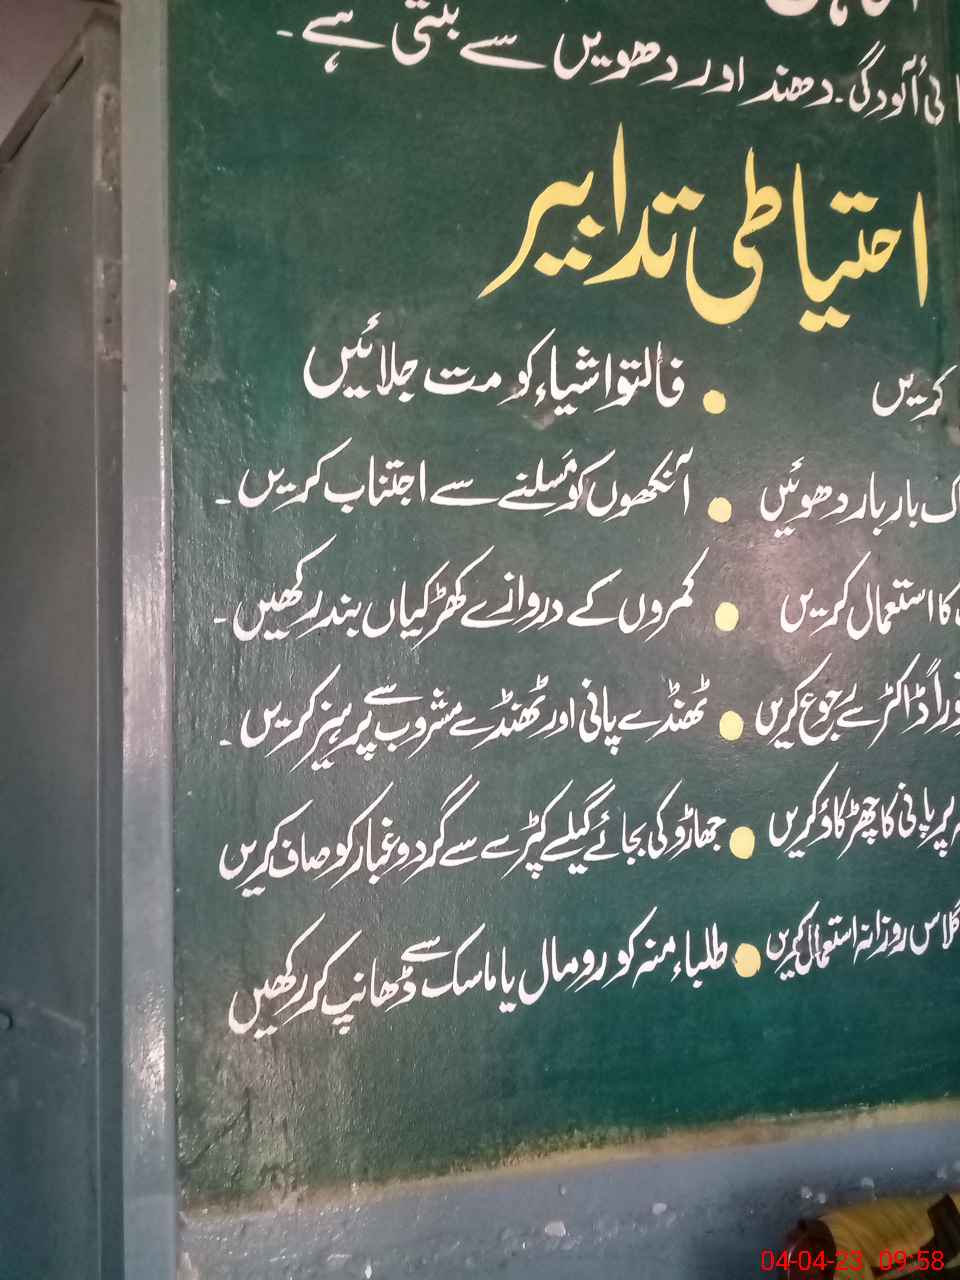 آلودگی۔ دھند اور دھویں سے بنتی ہے۔
احتیاطی تدابیر
کریں
• فالتو اشیاء کو مت جلائیں
بار بار دھوئیں
• آنکھوں کو مَسلنے سے اجتناب کریں۔
کا استعمال کریں
• کمروں کے دروازے کھڑکیاں بند رکھیں۔
ڈاکٹر سے رجوع کریں
• ٹھنڈے پانی اور ٹھنڈے مشروب سے پرہیز کریں۔
پر پانی کا چھڑکاؤ کریں
• جھاڑو کی بجائے گیلے کپڑے سے گرد و غبار کو صاف کریں
گلاس روزانہ استعمال کریں
• طلباء منہ کو رومال یا ماسک سے ڈھانپ کر رکھیں
04-04-23 09:58